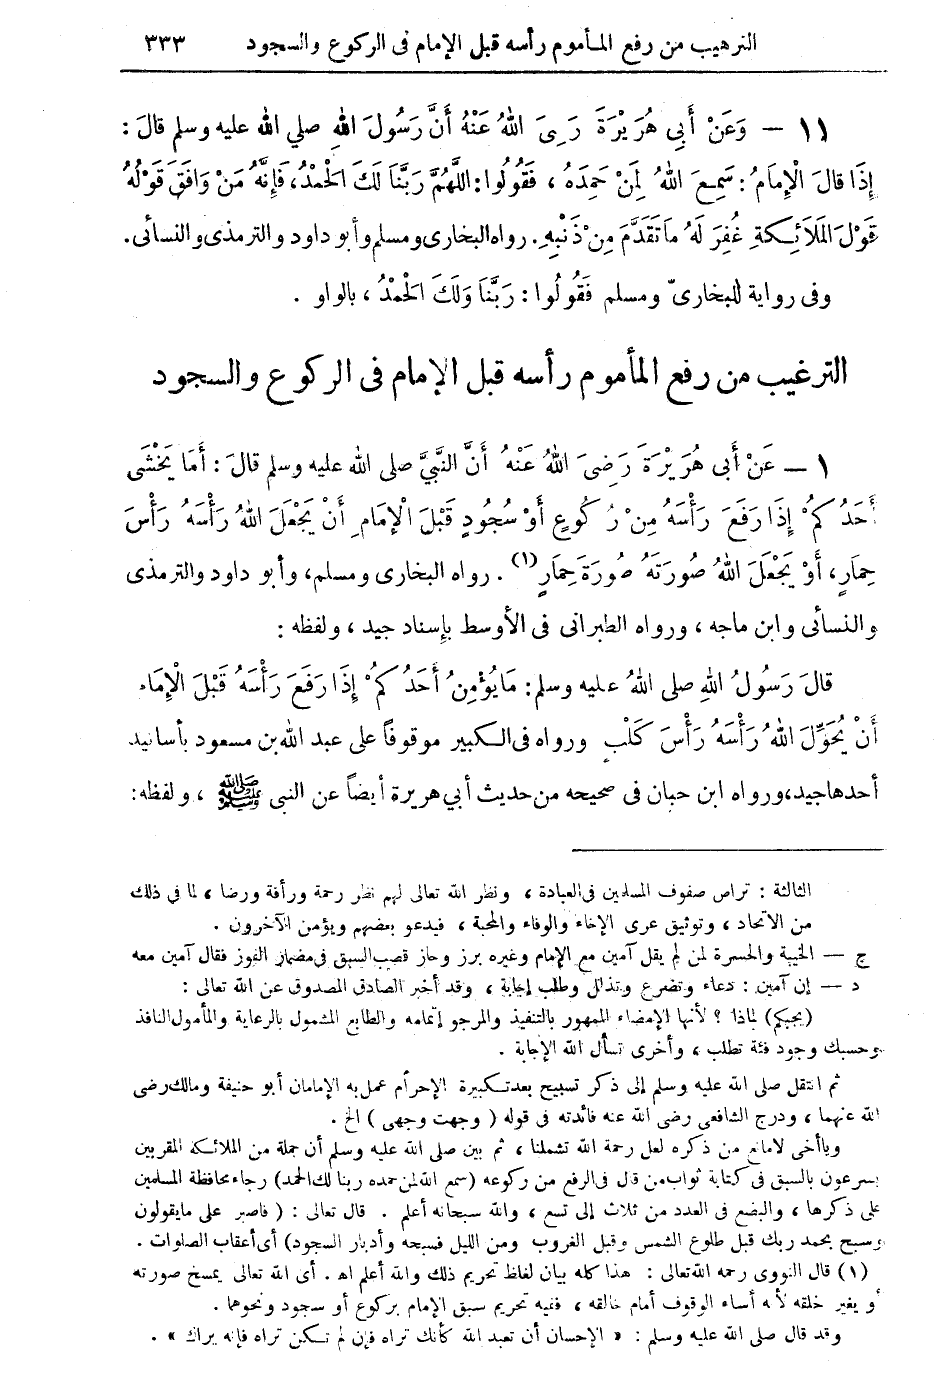 الترهيب من رفع المأموم رأسه قبل الإمام فى الركوع والسجود ٣٣٣
١١ — وَعَنْ أَبِى هُرَيْرَةَ رَ ىَ اللهُ عَنْهُ أَنَّ رَسُولَ اللهِ صلي الله عليه وسلم قالَ :
إِذَا قالَ الْإِمَامُ : سَمِعَ اللهُ لِمَنْ حَمِدَهُ ، فَقُولُوا : اللَّهُمَّ رَبَّنَا لَكَ الْحَمْدُ، فَإِنَّهُ مَنْ وَافَقَ قَوْلُهُ
قَوْلَ المَلَائِكَةِ غُفِرَ لَهُ ماَتَقَدَّمَ مِنْ ذَنْبِهِ. رواه البخارى ومسلم وأبو داود والترمذى والنسائى.
وفى رواية للبخارىّ ومسلم فَقُولُوا : رَبَّنَا وَلَكَ الْحَمْدُ ، بالواو .
الترغيب من رفع المأموم رأسه قبل الإمام فى الركوع والسجود
١ — عَنْ أَبِى هُرَيْرَةَ رَضِىَ اللهُ عَنْهُ أَنَّ النَّبِيَّ صلى الله عليه وسلم قالَ : أَمَا يَخْشَى
أَحَدُكُمْ إِذَا رَفَعَ رَأْسَهُ مِنْ رُكُوعٍ أَوْ سُجُودٍ قَبْلَ الْإِمَامِ أَنْ يَجْعَلَ اللهُ رَأْسَهُ رَأْسَ
حِمَارٍ، أَوْ يَجْعَلَ اللهُ صُورَتَهُ صُورَةَ حِمَارٍ (١) . رواه البخارى ومسلم، وأبو داود والترمذى
والنسائى وابن ماجه ، ورواه الطبرانى فى الأوسط بإسناد جيد ، ولفظه :
قالَ رَسُولُ اللهِ صلى اللهُ عليه وسلم : مَايُؤْمِنُ أَحَدُكُمْ إِذَا رَفَعَ رَأْسَهُ قَبْلَ الْإِمَامِ
أَنْ يُحَوِّلَ اللهُ رَأْسَهُ رَأْسَ كَلْبٍ ورواه فى الكبير موقوفاً على عبد الله بن مسعود بأسانيد
أحدها جيد، ورواه ابن حبان فى صحيحه من حديث أبي هريرة أيضاً عن النبى ﷺ ، ولفظه:
الثالثة : تراص صفوف المسلمين فى العبادة ، ونظر الله تعالى لهم نظر رحمة ورأفة ورضا ، لما في ذلك
من الاتحاد ، وتوثيق عرى الإخاء والوفاء والمحبة ، فيدعو بعضهم ويؤمن الآخرون .
ج — الخيبة والحسرة لمن لم يقل آمين مع الإمام وغيره برز وحاز قصب السبق فى مضمار الفوز فقال آمين معه
د — إن آمين : دعاء وتضرع وتذلل وطلب إجابة ، وقد أخبر الصادق المصدوق عن الله تعالى :
(يجبكم) لماذا ؟ لأنها الإمضاء الممهور بالتنفيذ والمرجو إتمامه والطابع المشمول بالرعاية والمأمول النافذ
وحسبك وجود فئة تطلب ، وأخرى تسأل الله الإجابة .
ثم انتقل صلى الله عليه وسلم إلى ذكر تسبيح بعد تكبيرة الإحرام عمل به الإمامان أبو حنيفة ومالك رضى
الله عنهما ، ودرج الشافعي رضى الله عنه فائدته فى قوله ( وجهت وجهى ) الخ .
وياأخى لامانع من ذكره لعل رحمة الله تشملنا ، ثم بين صلى الله عليه وسلم أن جملة من الملائكة المقربين
يسرعون بالسبق فى كتابة ثواب من قال فى الرفع من ركوعه (سمع الله لمن حمده ربنا لك الحمد) رجاء محافظة المسلمين
على ذكرها ، والبضع فى العدد من ثلاث إلى تسع ، والله سبحانه أعلم . قال تعالى : ( فاصبر على مايقولون
وسبح بحمد ربك قبل طلوع الشمس وقبل الغروب ومن الليل فسبحه وأدبار السجود) أى أعقاب الصلوات .
(١) قال النووى رحمه الله تعالى : هذا كله بيان لغلظ تحريم ذلك والله أعلم اه . أى الله تعالى يمسخ صورته
أو يغير خلقه لأنه أساء الوقوف أمام خالقه ، ففيه تحريم سبق الإمام بركوع أو سجود ونحوهما .
وقد قال صلى الله عليه وسلم : « الإحسان أن تعبد الله كأنك تراه فإن لم تكن تراه فإنه يراك » .